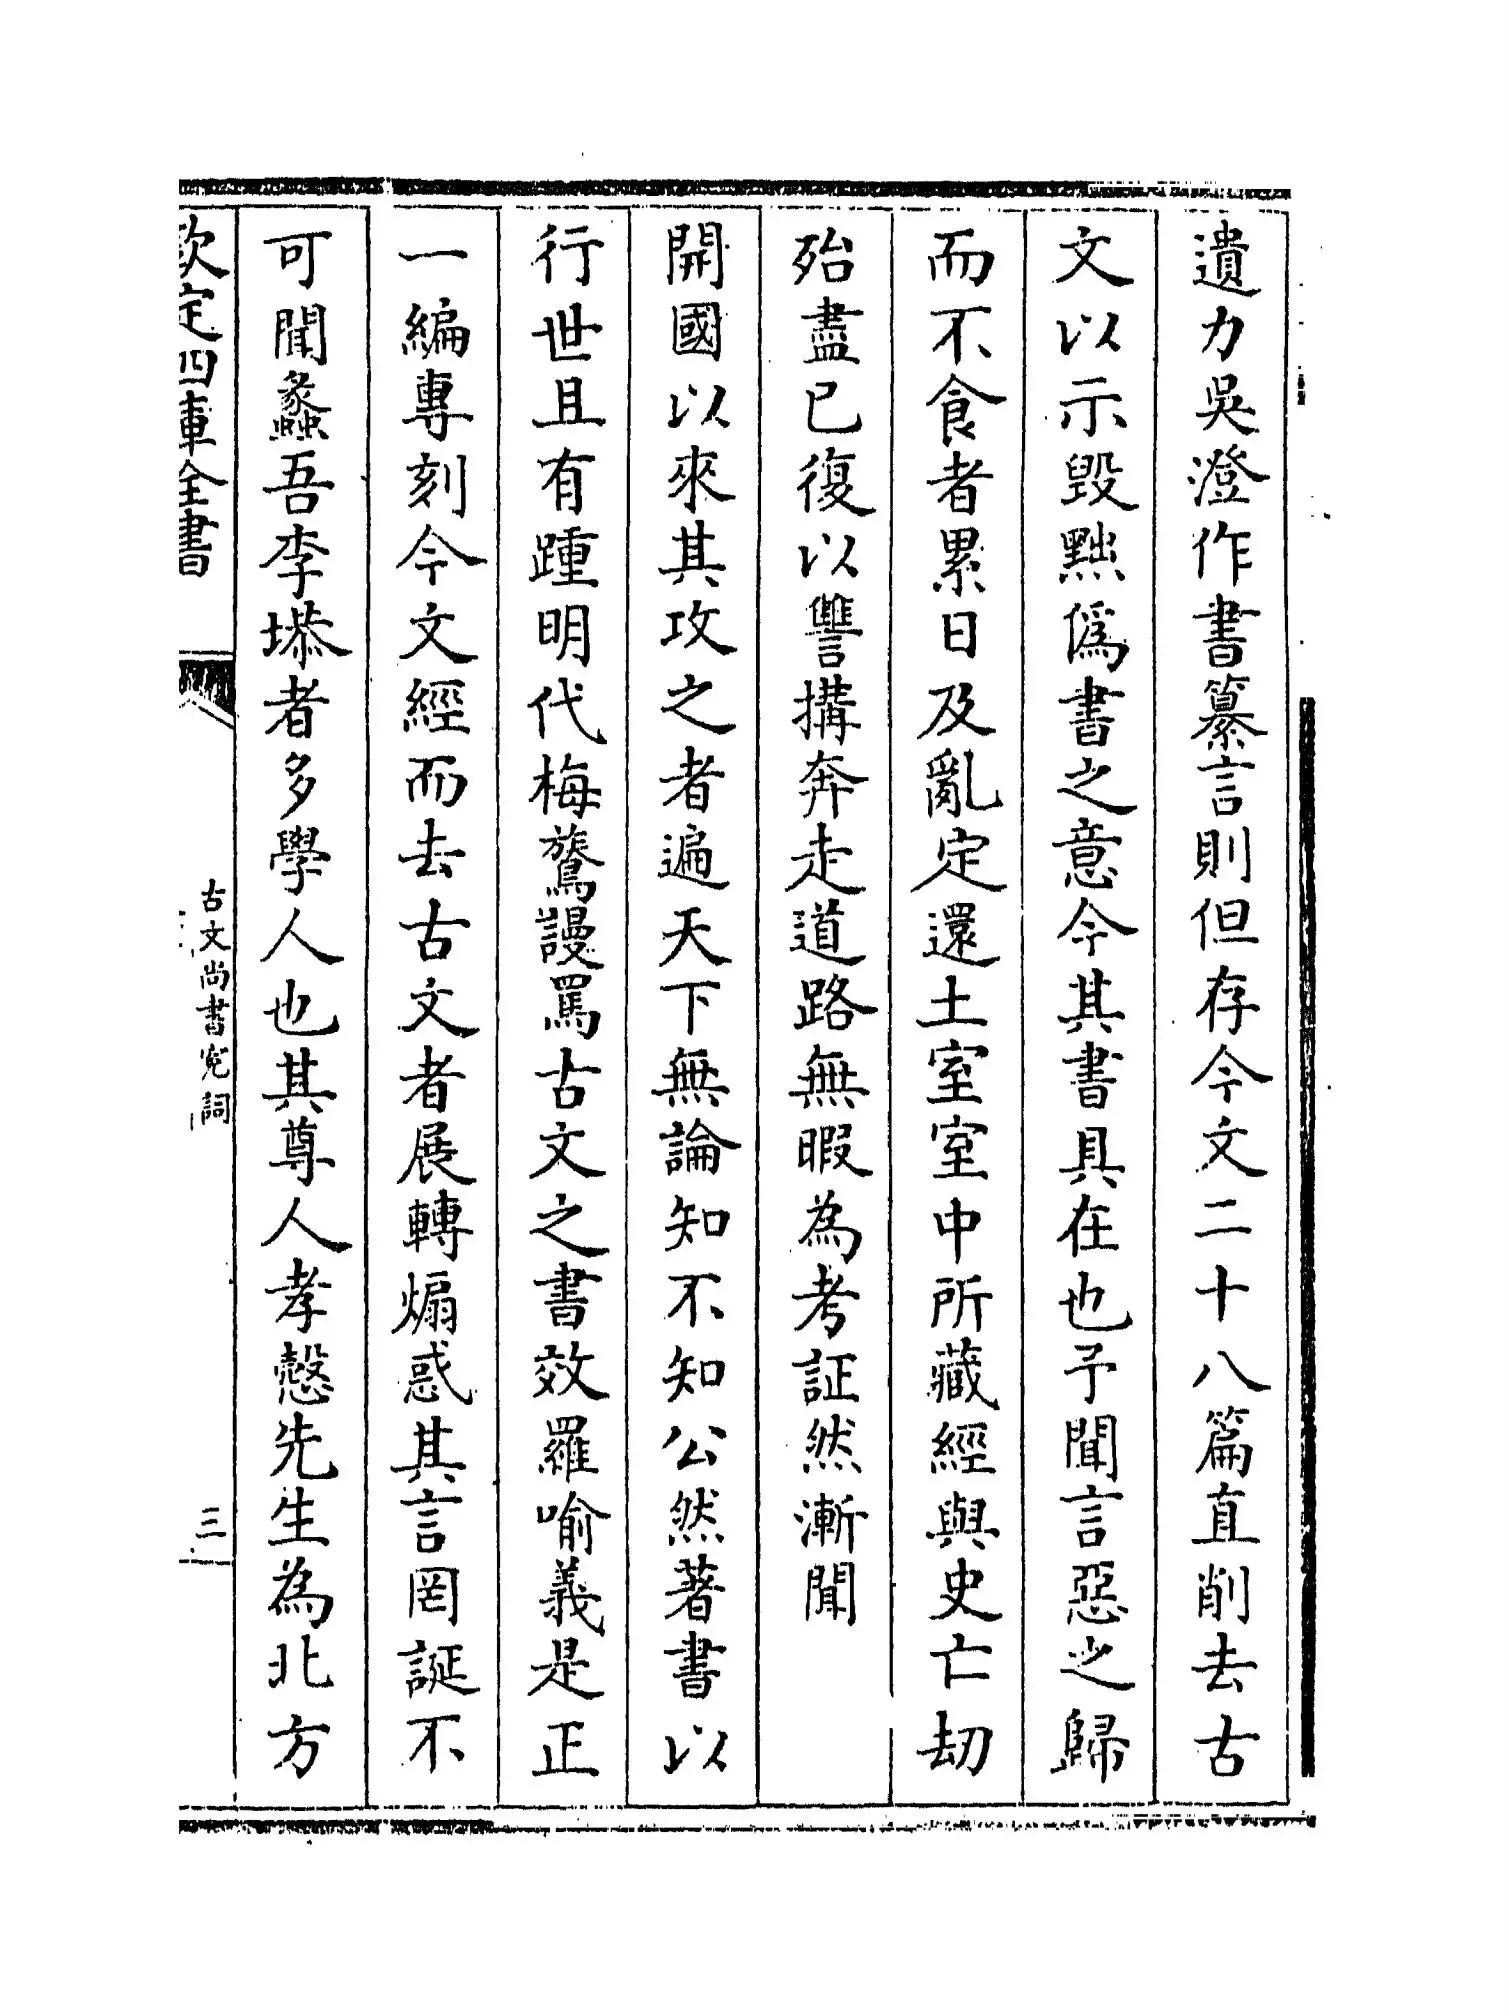 遺力吳澄作書纂言則但存今文二十八篇直削去古
文以示毀黜偽書之意今其書具在也予聞言惡之歸
而不食者累日及亂定還土室室中所藏經與史亡劫
殆盡已復以讐搆奔走道路無暇為考証然漸聞
開國以來其攻之者遍天下無論知不知公然著書以
行世且有踵明代梅鷟謾罵古文之書效羅喻義是正
一編專刻今文經而去古文者展轉煽惑其言罔誕不
可聞蠡吾李塨者多學人也其尊人孝慤先生為北方
欽定四庫全書
古文尚書寃詞
三